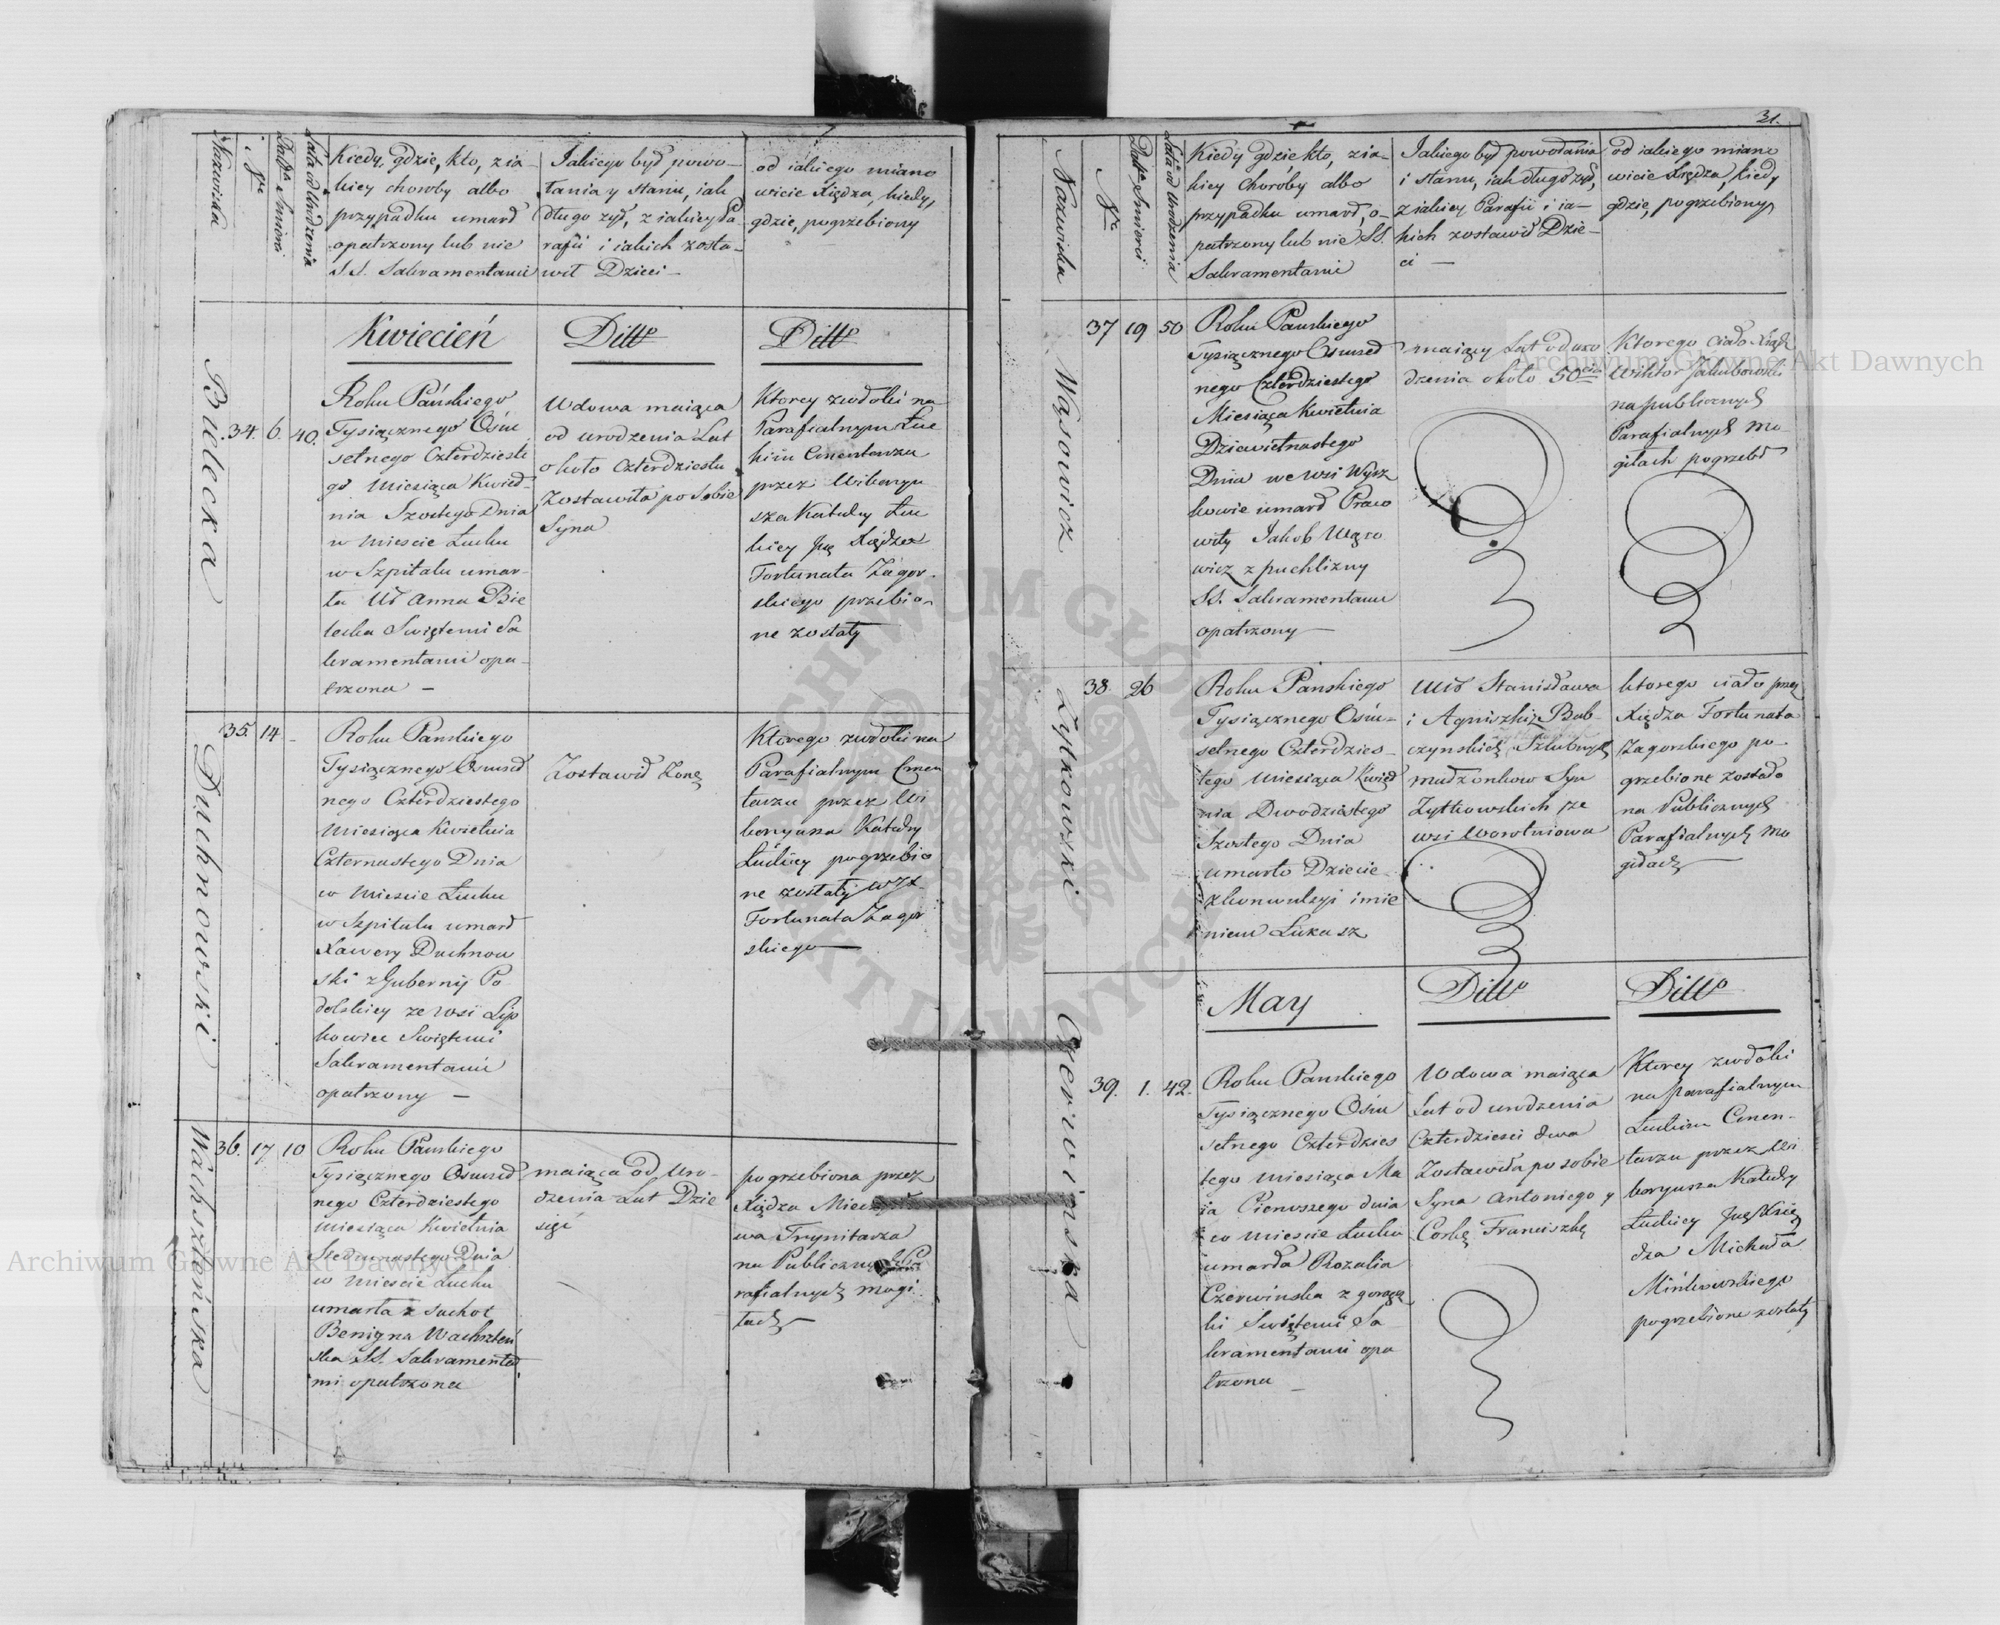 31.
Nazwiska
Nro
Datta Smierci
Lata od Urodzenia
Kiedy, gdzie, kto, z ia-
kiey choroby albo
przypadku umarł
opatrzony lub nie
SS. Sakramentami
Jakiego był powo-
łania y stanu, iak
długo żył, z iakiey Pa
rafii i iakich zosta-
wił Dzieci –
od iakiego miano
wicie Xiędza, kiedy,
gdzie, pogrzebiony
Kwiecień
Ditto
Ditto
Bielecka
34.
6.
40.
Roku Pańskiego
Tysiącznego Ośm
setnego Czterdzieste
go Miesiąca Kwiet-
nia Szostego Dnia
w Miescie Łucku
w Szpitalu umar-
ła Ur Anna Bie
lecka Swiętemi Sa
kramentami opa-
trzona –
Wdowa maiąca
od urodzenia Lat
około Czterdziestu
Zostawiła po Sobie
Syna
Ktorey zwłoki na
Parafialnym Łuc
kim Cmentarzu
przez Wikaryu
sza Katedry Łuc
kiey Jx Xiędza
Fortunata Zagor-
skiego przebio-
ne zostały
Duchnowski
35.
14
-
Roku Panskiego
Tysiącznego Osmset
nego Czterdziestego
Miesiąca Kwietnia
Czternastego Dnia
w Miescie Łucku
w Szpitalu umarł
Xawery Duchnow
ski z Gubernij Po
dolskiey ze wsi Lip
kowiec Swiętemi
Sakramentami
opatrzony –
Zostawił Zonę
Ktorego zwłoki na
Parafialnym Cmen
tarzu przez Wi
karyusza Katedry
Łuckiey pogrzebio
ne zostały W JX
Fortunata Zagor
skiego
Wachszteńska
36.
17
10
Roku Panskiego
Tysiącznego Osmset
nego Czterdziestego
Miesiąca Kwietnia
Siedmnastego Dnia
w Miescie Łucku
umarła z Suchot
Benigna Wachszteń
ska SS. Sakramenta
mi opatrzona
maiąca od Uro-
dzenia Lat Dzie
sięć
pogrzebiona przez
Xiędza
wa Trynitarza
na Publicznych Pa
rafialnych mogi
łach
Nazwiska
Nro
Datta Smierci
Lata od Urodzenia
Kiedy gdzie, kto, z ia-
kiey Choroby albo
przypadku umarł, o-
patrzony lub nie SS.
Sakramentami
Jakiego był powołania
i stanu, iak długo żył,
z iakiey Parafii i ia-
kich zostawił Dzie-
ci –
od iakiego miano
wicie Xiędza, kiedy
gdzie, pogrzebiony
Wąsowicz
37
19
50
Roku Panskiego
Tysiącznego Osmset
nego Czterdziestego
Miesiąca Kwietnia
Dziewietnastego
Dnia we wsi Wysz
kowie umarł Praco
wity Jakob Wąso
wicz z puchlizny
SS. Sakramentami
opatrzony
maiący Lat od uro
dzenia około 50ciu
Ktorego ciało Xiądz
Wiktor Jakubowski
na publicznych
Parafialnych Mo-
giłach pogrzebł
Zytkowski
38.
26
Roku Panskiego
Tysiącznego Ośm-
setnego Czterdzies-
tego Miesiąca Kwiet
nia Dwodziestego
Szostego Dnia
umarło Dziecie
z konwulsyi imie
niem Łukasz
Ur Stanisława
i Agniszki z Bab-
czynskich Szlubnych
małżonkow Syn
Zytkowskich ze
wsi Worotniowa
ktorego ciało przez
Xiędza Fortunata
Zagorskiego po-
grzebione zostało
na Publicznych
Parafialnych Mo
giłach
May
Ditto
Ditto
Czerwinska
39.
1.
42.
Roku Panskiego
Tysiącznego Ośm
setnego Czterdzies
tego Miesiąca Ma
ia Pierwszego dnia
w Miescie Łucku
umarła Rozalia
Czerwińska z gorącz
ki Swiętemi Sa
kramentami opa
trzona –
Wdowa maiąca
Lat od urodzenia
Czterdziesci dwa
Zostawiła po sobie
Syna Antoniego y
Corkę Franciszkę
Ktorey zwłoki
na parafialnym
Łuckim Cmen-
tarzu przez Wi
karyusza Katedry
Łuckiey Jx Xię
dza Michała
Minkowskiego
pogrzebione zostały
Archiwum Główne Akt Dawnych
Archiwum Główne Akt Dawnych
ARCHIWUM GŁÓWNE AKT DAWNYCH